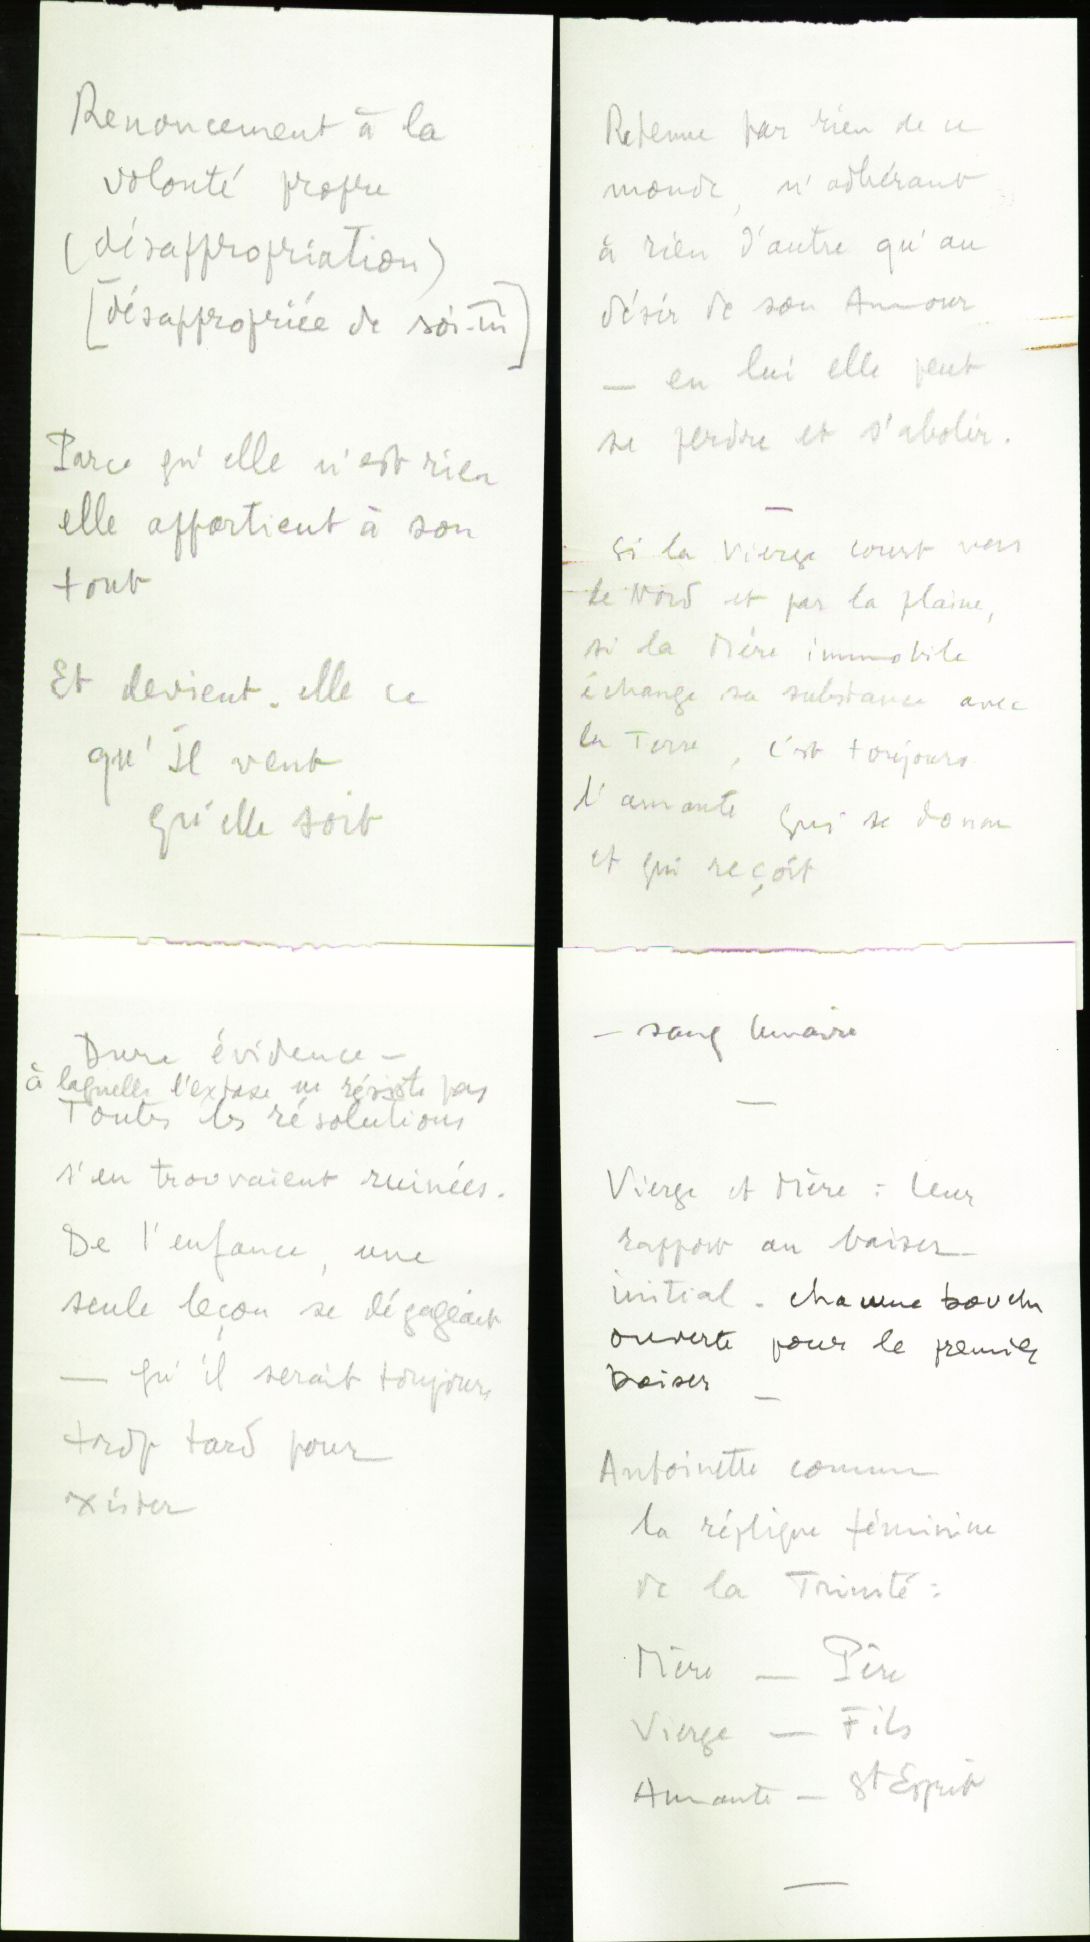 Renoncement à la
volonté propre
(désappropriation)
[désappropriée de soi-m̄]
Parce qu'elle n'est rien
elle appartient à son
tout
Et devient-elle ce
qu'Il veut
qu'elle soit
Retenue par rien de ce
monde, n'adhérant
à rien d'autre qu'au
désir de son Amour
— en lui elle peut
se perdre et s'abolir.
—
Si la Vierge court vers
le Nord et par la plaine,
si la Mère immobile
échange sa substance avec
la Terre, c'est toujours
l'amante qui se donne
et qui reçoit
Dure évidence —
à laquelle l'extase ne résiste pas
Toutes les résolutions
s'en trouvaient ruinées.
De l'enfance, une
seule leçon se dégageait
— qu'il serait toujours
trop tard pour
exister
— sang lunaire
—
Vierge et Mère : leur
rapport au baiser
initial. chacune bouche
ouverte pour le premier
baiser —
Antoinette comme
la réplique féminine
de la Trinité :
Mère — Père
Vierge — Fils
Amante — St Esprit
—